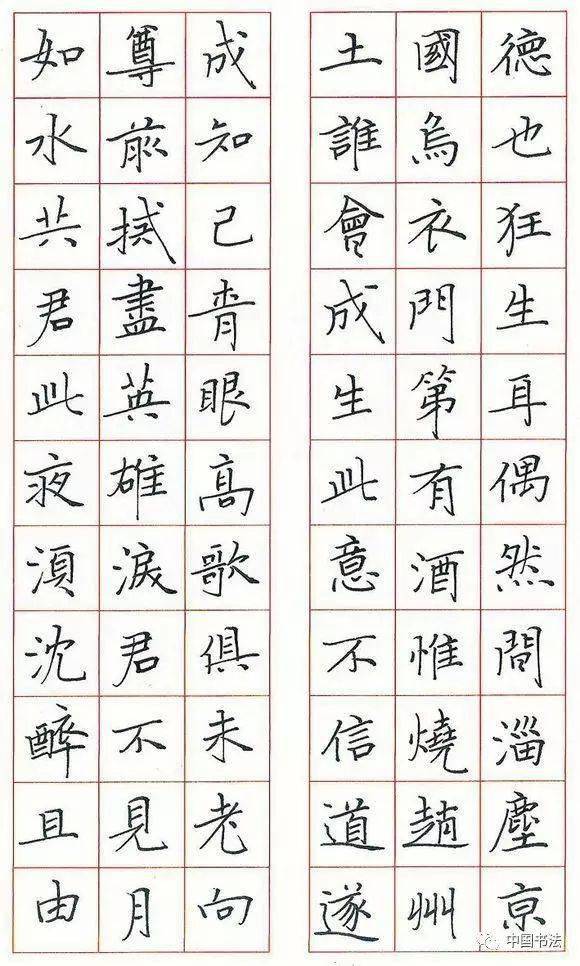 德也狂生耳偶然間淄塵京
國烏衣門第有酒惟燒趙州
土誰會成生此意不信道遂
成知己青眼高歌俱未老向
尊前拭盡英雄淚君不見月
如水共君此夜湏沈醉且由
中国书法